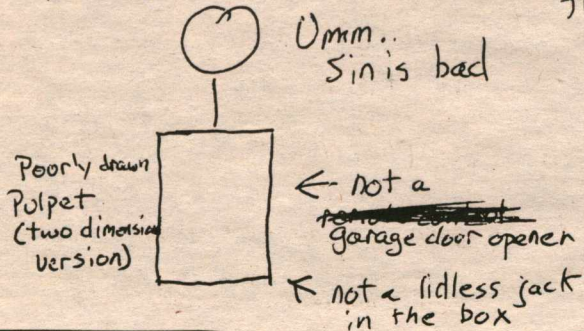 Umm..
Sin is bad
Poorly drawn
Pulpet
(two dimension
version)
← not a
garage door opener
↖ not a lidless jack
in the box